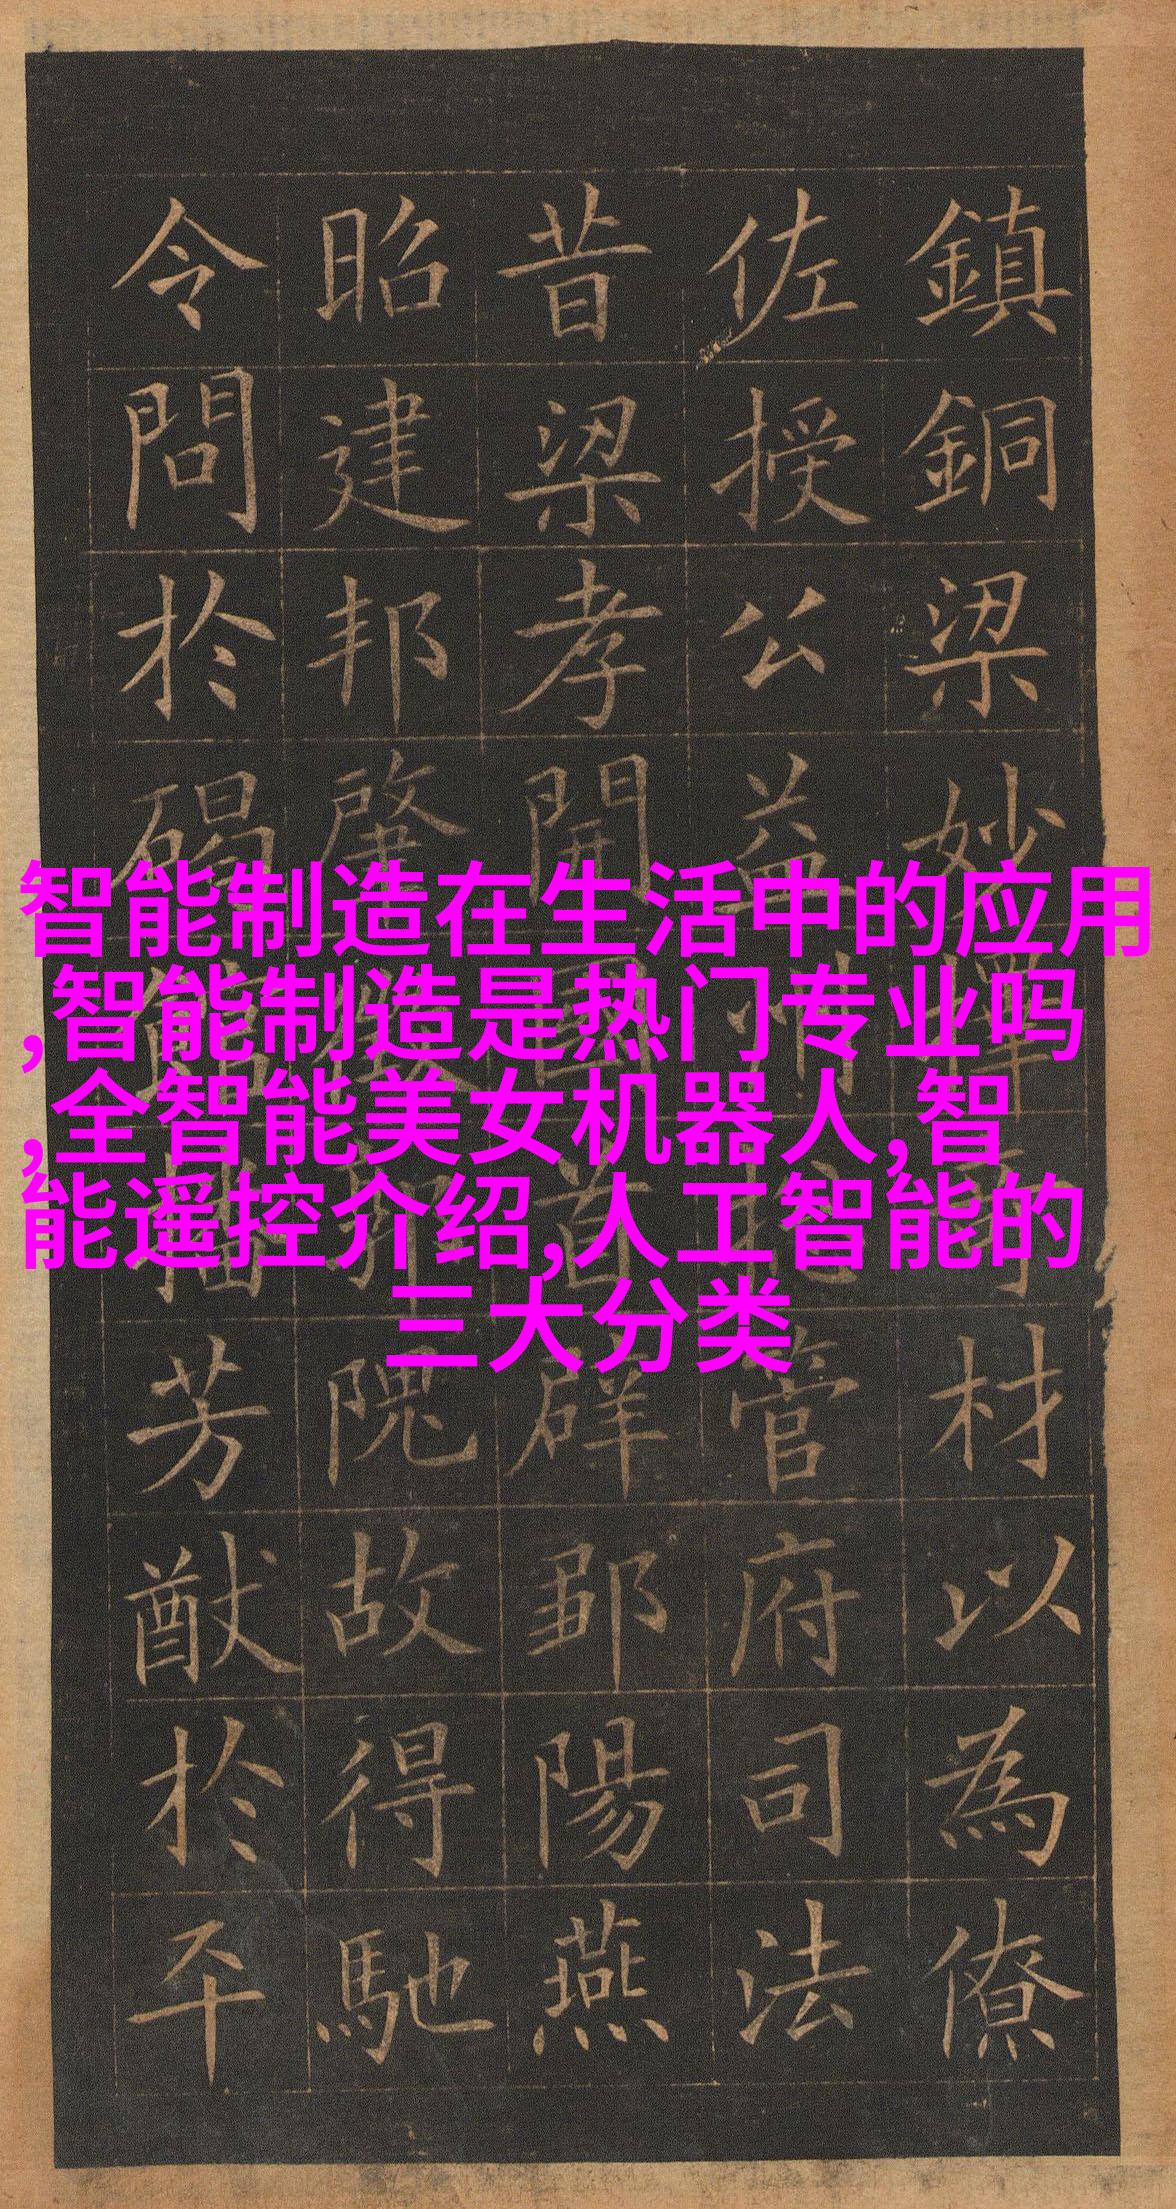 鎮銅梁妙材以為僚
佐授公益州管府司法
昔梁孝開國首辟鄒陽燕
昭建邦肇郭隗故得馳
令問於碣館播芳猷於平
智能制造在生活中的应用
,智能制造是热门专业吗
,全智能美女机器人,智
能遥控介绍,人工智能的
三大分类